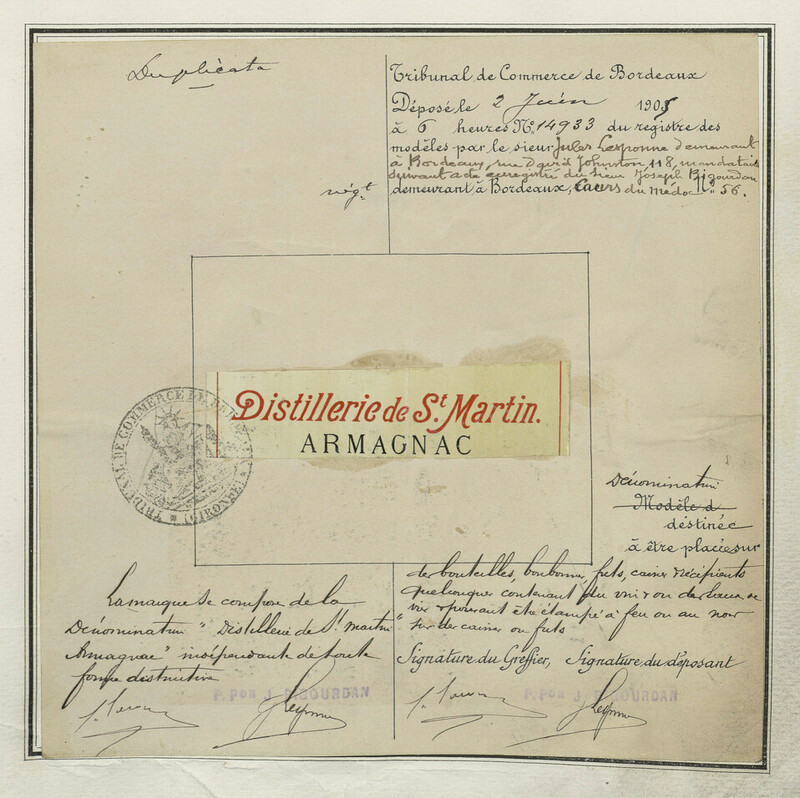 Duplicata
Tribunal de Commerce de Bordeaux
Déposé le 2 Juin 1905
à 6 heures No. 14933 du registre des
modèles par le sieur Jules Lesponne demeurant
à Bordeaux, rue David Johnston 118, mandataire
suivant acte enregistré du sieur Joseph Bigourdan
négt demeurant à Bordeaux, Cours du Médoc No 56.
Distillerie de St Martin.
ARMAGNAC
TRIBUNAL DE COMMERCE DE
(GIRONDE)
Dénomination
Modèle d
destinée
à être placée sur
des bouteilles, bonbonnes, fûts, caisses & récipients
quelconques contenant du vin ou
pouvant être étampé à feu ou au noir
sur des caisses ou fûts
La marque se compose de la
Dénomination "Distillerie de St Martin
Armagnac" indépendante de toute
forme distinctive
Signature du Greffier, Signature du déposant
P. Pon J. BIGOURDAN
P. Pon J. BIGOURDAN
Lesponne
Lesponne